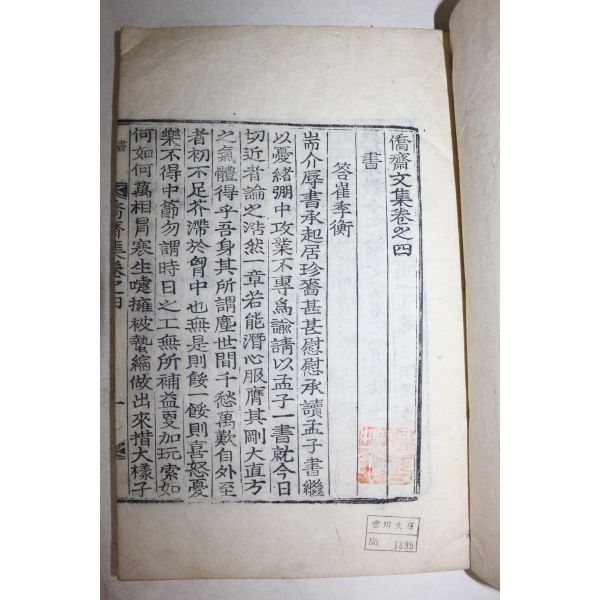 僑齋文集卷之四
書
答崔季衡
耑介辱書承起居珍嗇甚甚慰慰承讀孟子書繼
以憂緒弸中攻業不專爲諭請以孟子一書就今日
切近者論之浩然一章若能潛心服膺其剛大直方
之氣體得乎吾身其所謂塵世間千愁萬歎自外至
者初不足芥滯於胷中也無是則餒一餒則喜怒憂
樂不得中節勿謂時日之工無所補益更加玩索如
何如何萬相冐寒生嚱擁被蟄縮做出來措大樣子
書
僑齋集卷之四
一
雲川文庫
No. 1895